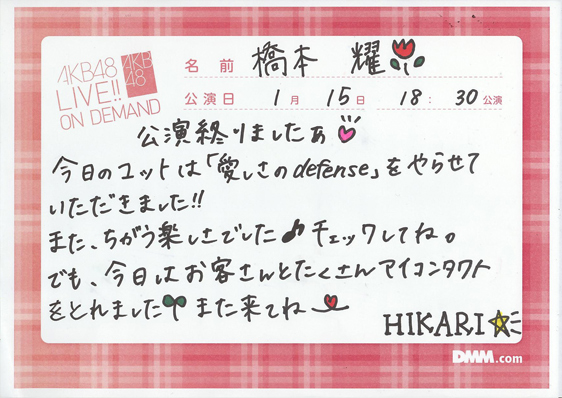 AKB48
LIVE!!
ON DEMAND
AKB
48
名前 橋本 耀
公演日 1月 15日 18:30公演
公演終りましたぁ
今日のユットは「愛しさのdefense」をやらせて
いただきました!!
また、ちがう楽しさでした♪チェックしてね。
でも、今日はお客さんとたくさんアイコンタクト
をとれました また来てね
HIKARI
DMM.com